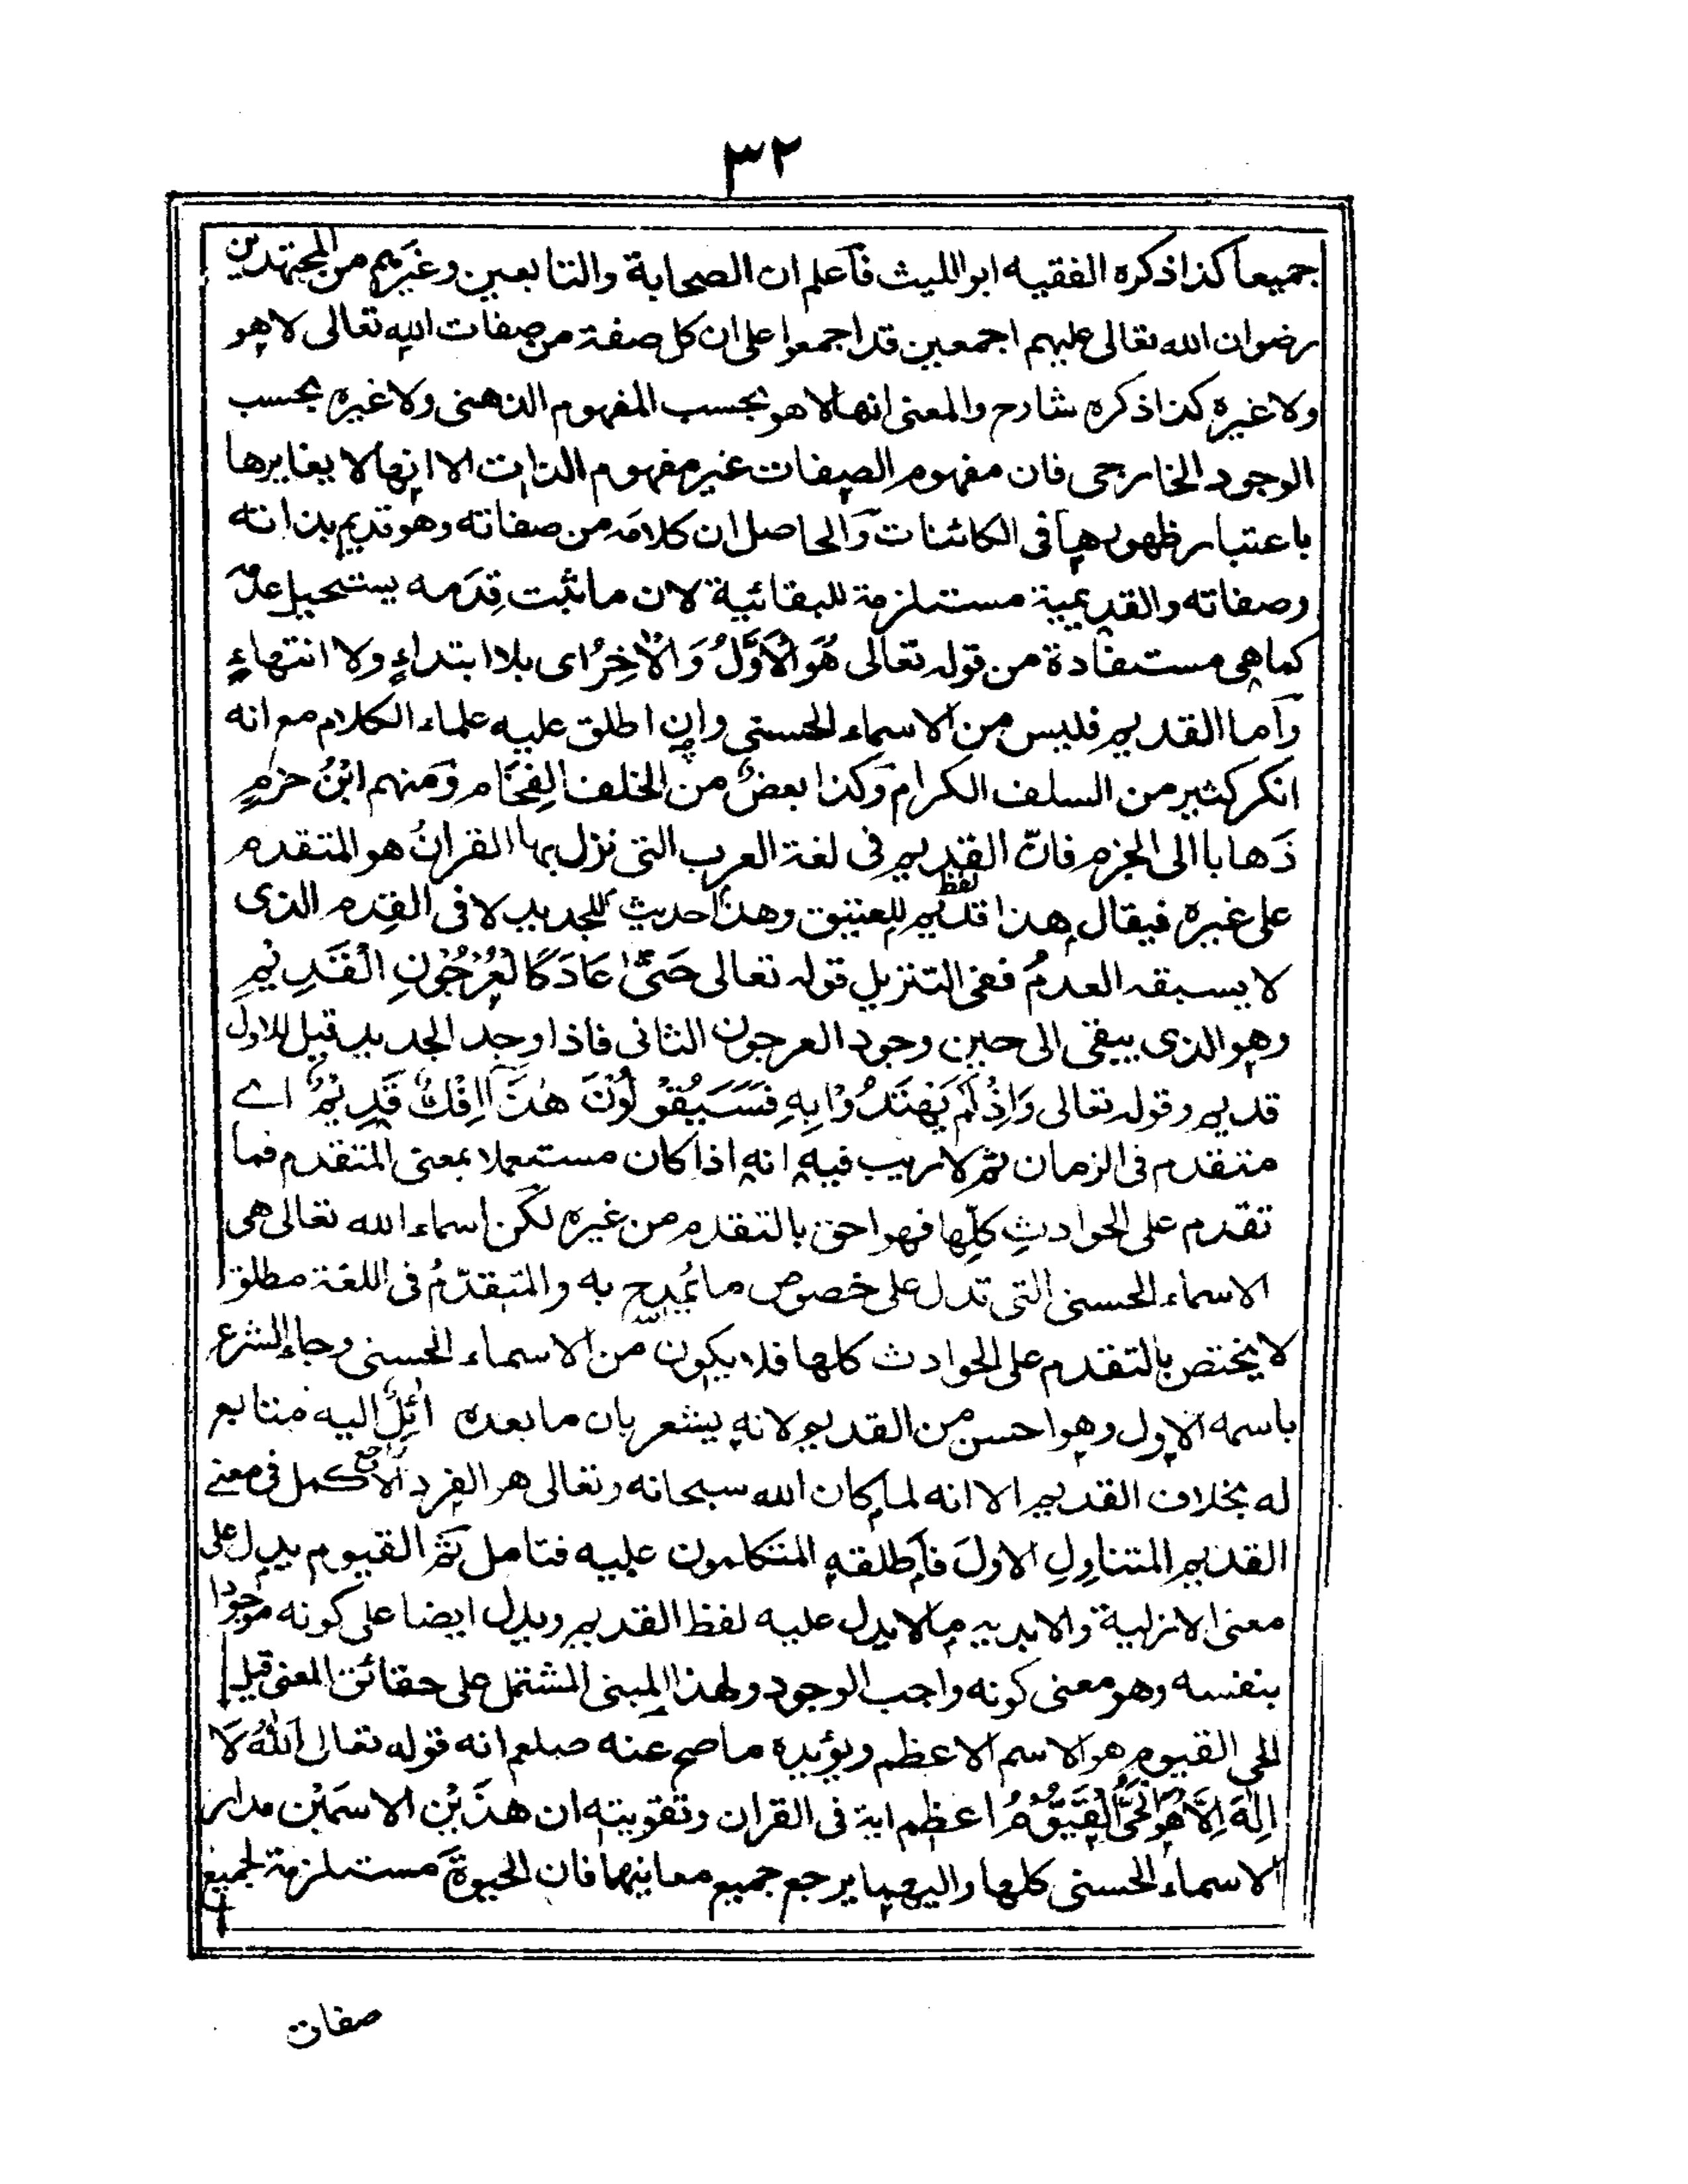 ٣٢
جميعا كذا ذكره الفقيه ابو الليث فاعلم ان الصحابة والتابعين وغيرهم من المجتهدين
رضوان الله تعالى عليهم اجمعين قد اجمعوا على ان كل صفة من صفات الله تعالى لا هو
ولا غيره كذا ذكره شارح والمعنى انها لا هو بحسب المفهوم الذهنى ولا غيره بحسب
الوجود الخارجى فان مفهوم الصفات غير مفهوم الذات الا انها لا يغايرها
باعتبار ظهورها فى الكائنات وَالحاصل ان كلامَه من صفاته وهو قديم بذاته
وصفاته والقديمية مستلزمة للبقائية لان ما ثبت قِدَمه يستحيل عدمه
كما هى مستفادة من قوله تعالى هُوَ الْاَوَّلُ وَالْاٰخِرُ اى بلا ابتداءٍ ولا انتهاءٍ
وَاَما القديم فليس من الاسماء الحسنى وان اطلق عليه علماء الكلام مع انه
انكر كثير من السلف الكرام وَكذا بعضٌ من الخلف الفِخَام وَمنهم ابْنُ حزمٍ
ذَهابا الى الجزم فانّ القديم فى لغة العرب التى نزل بها القرانُ هو المتقدم
على غيره فيقال هذا لفظ قديم للعتيق وهذا حديث للجديد لا فى القِدم الذى
لا يسبقه العدمُ ففى التنزيل قوله تعالى حَتّٰى عَادَ كَالْعُرْجُوْنِ الْقَدِيْمِ
وهو الذى يبقى الى حين وجود العرجون الثانى فاذا وجد الجديد قيل للاول
قديم وقوله تعالى وَاِذْ لَمْ يَهْتَدُوْا بِهِ فَسَيَقُوْلُوْنَ هٰذَا اِفْكٌ قَدِيْمٌ اے
متقدم فى الزمان ثم لا ريب فيه انه اذا كان مستعملا بمعنى المتقدم فما
تقدم على الحوادثِ كلِّها فهو احق بالتقدم من غيره لكن اسماء الله تعالى هى
الاسماء الحسنى التى تدل على خصوص ما يُمدح به والمتقدّمُ فى اللغة مطلق
لا يختص بالتقدم على الحوادث كلها فلا يكون من الاسماء الحسنى وجاء الشرع
باسمه الاول وهو احسن من القديم لانه يشعر بان ما بعده ائلٌ راجع اليه متابع
له بخلاف القديم الا انه لما كان الله سبحانه وتعالى هو الفرد الاكمل فى معنے
القديم المتناوِلِ الاولَ فاطلقه المتكلمون عليه فتامل ثم القيوم يدل على
معنى الازلية والابديه ما لا يدل عليه لفظ القديم ويدل ايضا على كونه موجودا
بنفسه وهو معنى كونه واجب الوجود ولهذا المبنى المشتمل على حقائق المعنى قيل
الحى القيوم هو الاسم الاعظم ويؤيده ما صح عنه صلعم انه قوله تعالى اَللّٰهُ لَا
اِلٰهَ اِلَّا هُوَ الْحَىُّ الْقَيُّوْمُ اعظم اية فى القران وتقويته ان هذَيْن الاسمَيْن مدار
الاسماء الحسنى كلها واليهما يرجع جميع معانيها فان الحيوةَ مستلزمة لجميع
صفات